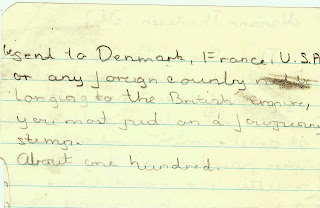 send to Denmark, France, U.S.A
or any foreign country
longing to the British empire,
you must put an a fourpenny
stemp.
About one hundred.